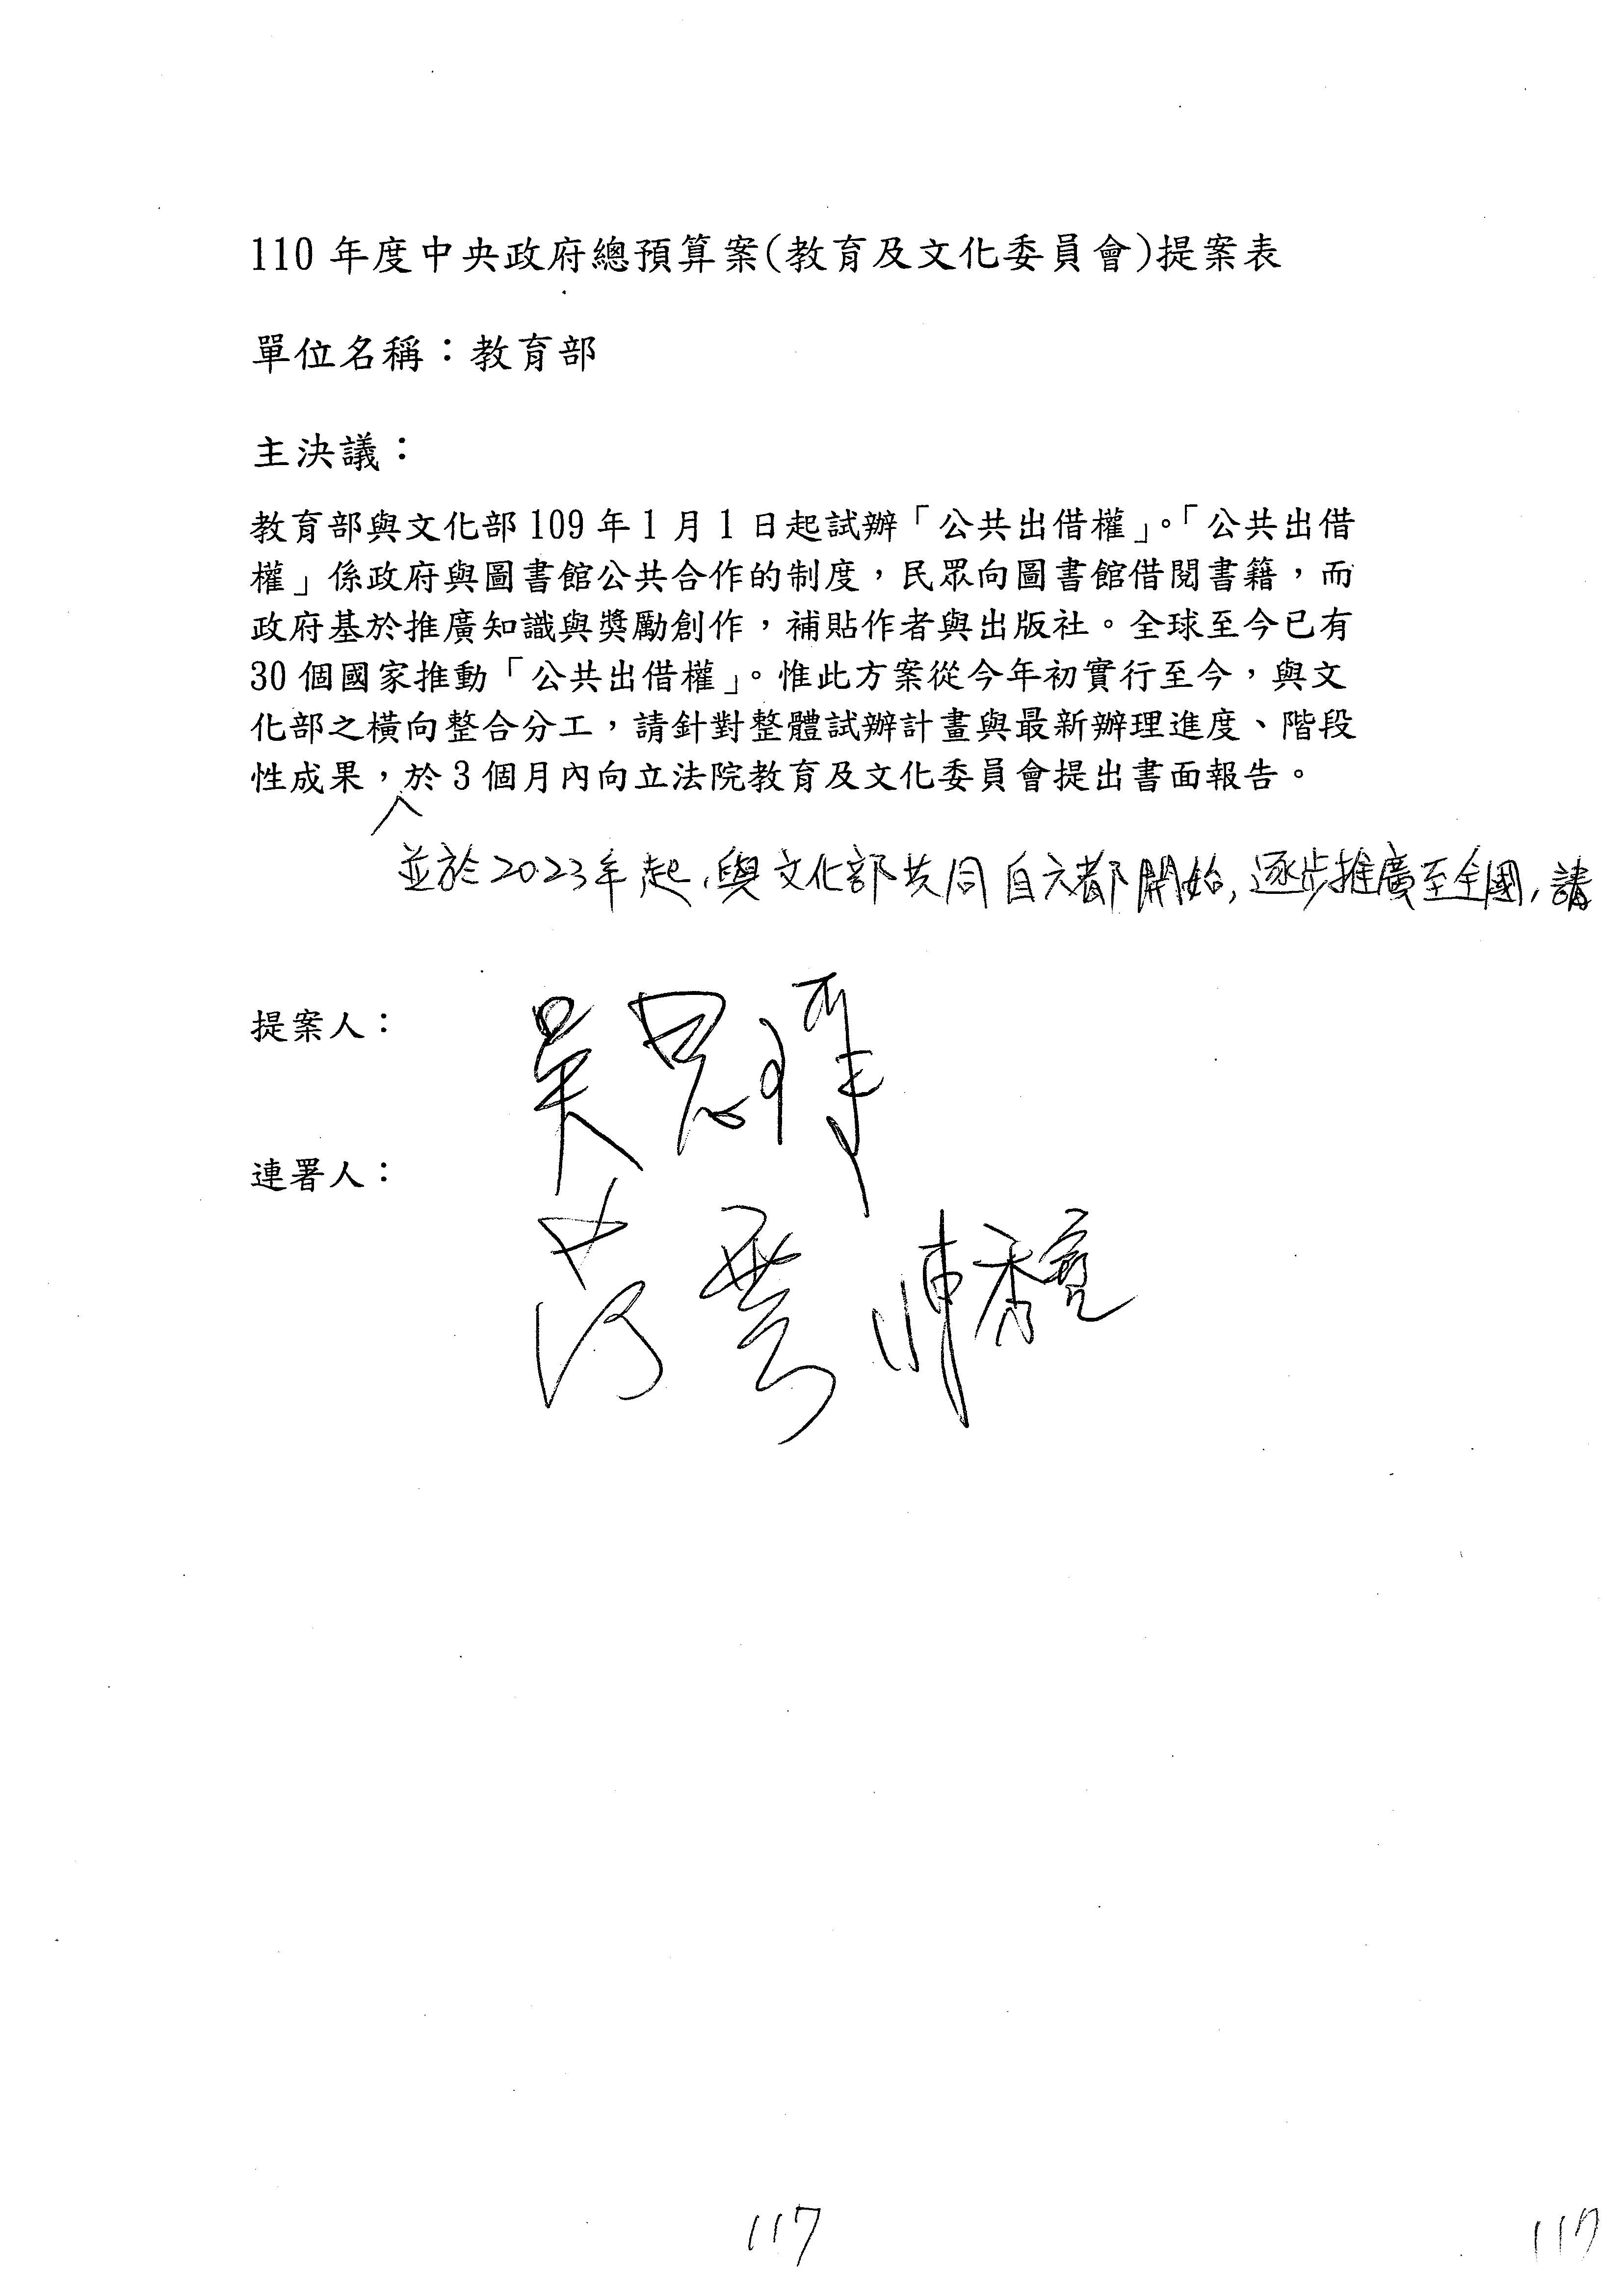 110 年度中央政府總預算案(教育及文化委員會)提案表
單位名稱：教育部
主決議：
教育部與文化部 109 年 1 月 1 日起試辦「公共出借權」。「公共出借
權」係政府與圖書館公共合作的制度，民眾向圖書館借閱書籍，而
政府基於推廣知識與獎勵創作，補貼作者與出版社。全球至今已有
30 個國家推動「公共出借權」。惟此方案從今年初實行至今，與文
化部之橫向整合分工，請針對整體試辦計畫與最新辦理進度、階段
性成果，於 3 個月內向立法院教育及文化委員會提出書面報告。
並於2023年起，與文化部共同自六都開始，逐步推廣至全國，請
提案人：
吳思瑤
連署人：
陳秀寳
117
117